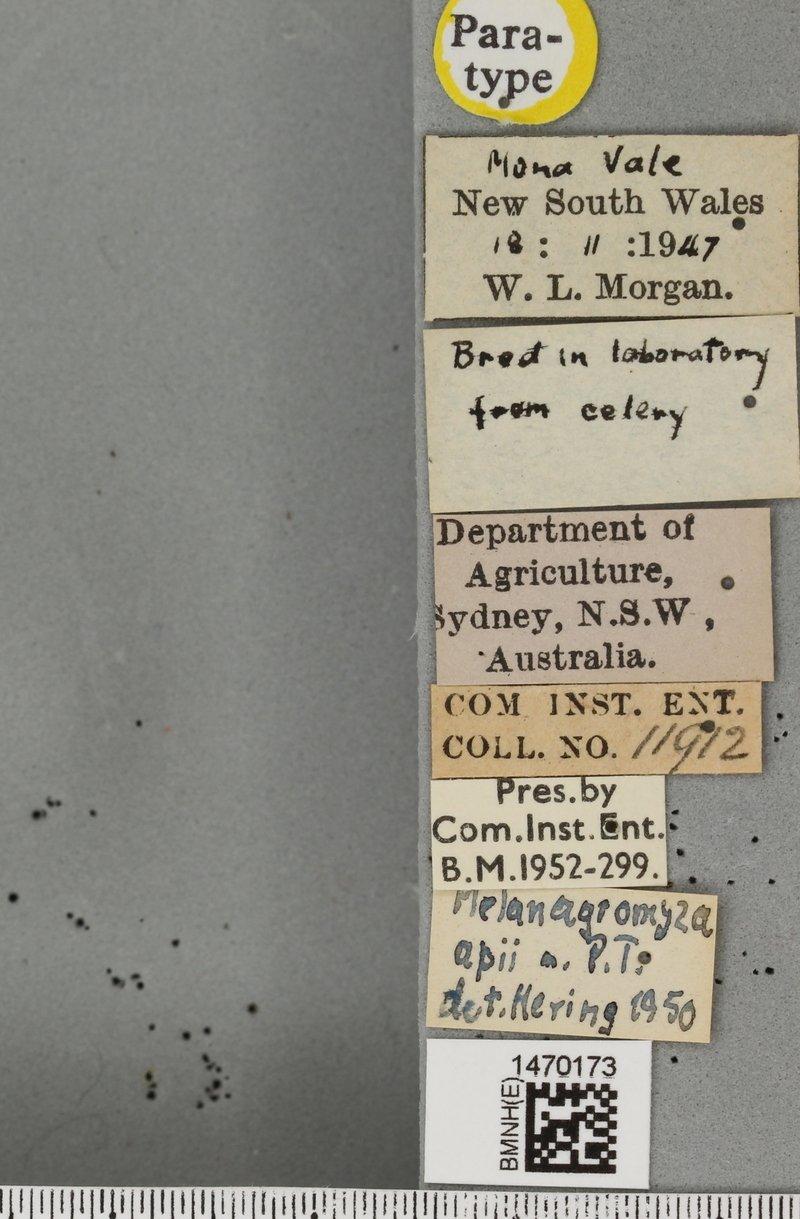 Para-
type
Mona Vale
New South Wales
18 : 11 :1947
W. L. Morgan.
Bred in laboratory
from celery
Department of
Agriculture,
Sydney, N.S.W,
Australia.
COM INST. ENT.
COLL. NO. 11912
Pres.by
Com.Inst.Ent.
B.M.1952-299.
Melanagromyza
apii n. P.T.
det. Hering 1950
1470173
BMNH(E)